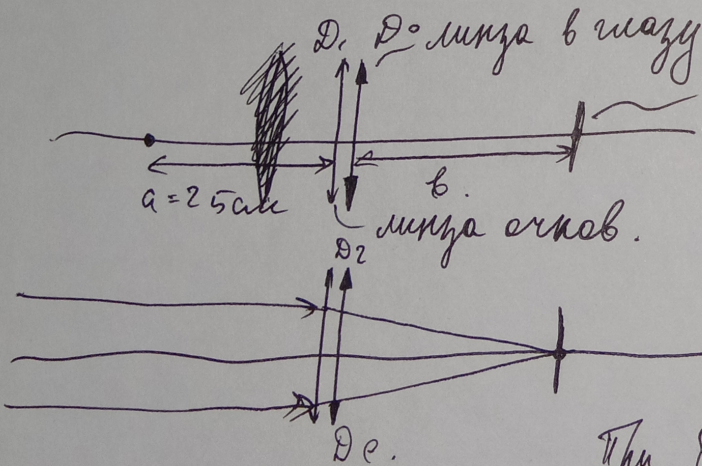 D₁ D₀ линза в глазу
a = 25см
в.
линза очков.
D₂
De.
При